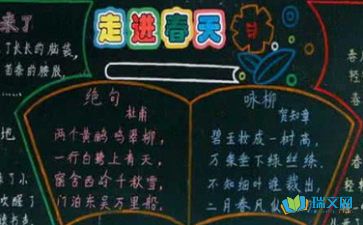 走进春天
来了
了长长的脑袋,
的腰肢,
地
来了小
吹醒了
绝句
杜甫
两个黄鹂鸣翠柳,
一行白鹭上青天,
窗含西岭千秋雪,
门泊东吴万里船
咏柳
贺知章
碧玉妆成一树高,
万条垂下绿丝绦,
不知细叶谁裁出,
二月春风似
瑞文网